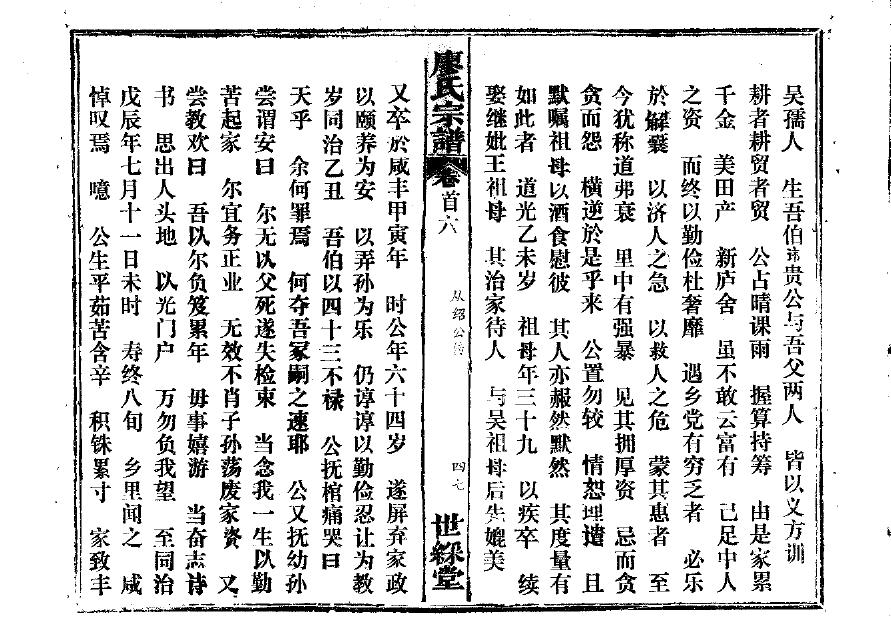 吴孺人 生吾伯祎贵公与吾父两人 皆以义方训
耕者耕贸者贸 公占晴课雨 握算持筹 由是家累
千金 美田产 新庐舍 虽不敢云富有 已足中人
之资 而终以勤俭杜奢靡 遇乡党有穷乏者 必乐
於解囊 以济人之急 以救人之危 蒙其惠者 至
今犹称道弗衰 里中有强暴 见其拥厚资 忌而贪
贪而怨 横逆於是乎来 公置勿较 情恕理遣 且
默嘱祖母以酒食慰彼 其人亦赧然默然 其度量有
如此者 道光乙未岁 祖母年三十九 以疾卒 续
娶继妣王祖母 其治家待人 与吴祖母后先媲美
廖氏宗譜 卷首六 从绍公传 四七 世綵堂
又卒於咸丰甲寅年 时公年六十四岁 遂屏弃家政
以颐养为安 以弄孙为乐 仍谆谆以勤俭忍让为教
岁同治乙丑 吾伯以四十三不禄 公抚棺痛哭曰
天乎 余何罪焉 何夺吾冢嗣之速耶 公又抚幼孙
尝谓安曰 尔无以父死遂失检束 当念我一生以勤
苦起家 尔宜务正业 无效不肖子孙荡废家资 又
尝教欢曰 吾以尔负笈累年 毋事嬉游 当奋志诗
书 思出人头地 以光门户 万勿负我望 至同治
戊辰年七月十一日未时 寿终八旬 乡里闻之 咸
悼叹焉 噫 公生平茹苦含辛 积铢累寸 家致丰